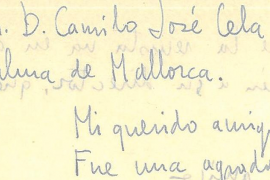 . D. Camilo José Cela
alma de Mallorca.
Mi querido amig
Fue una agrada